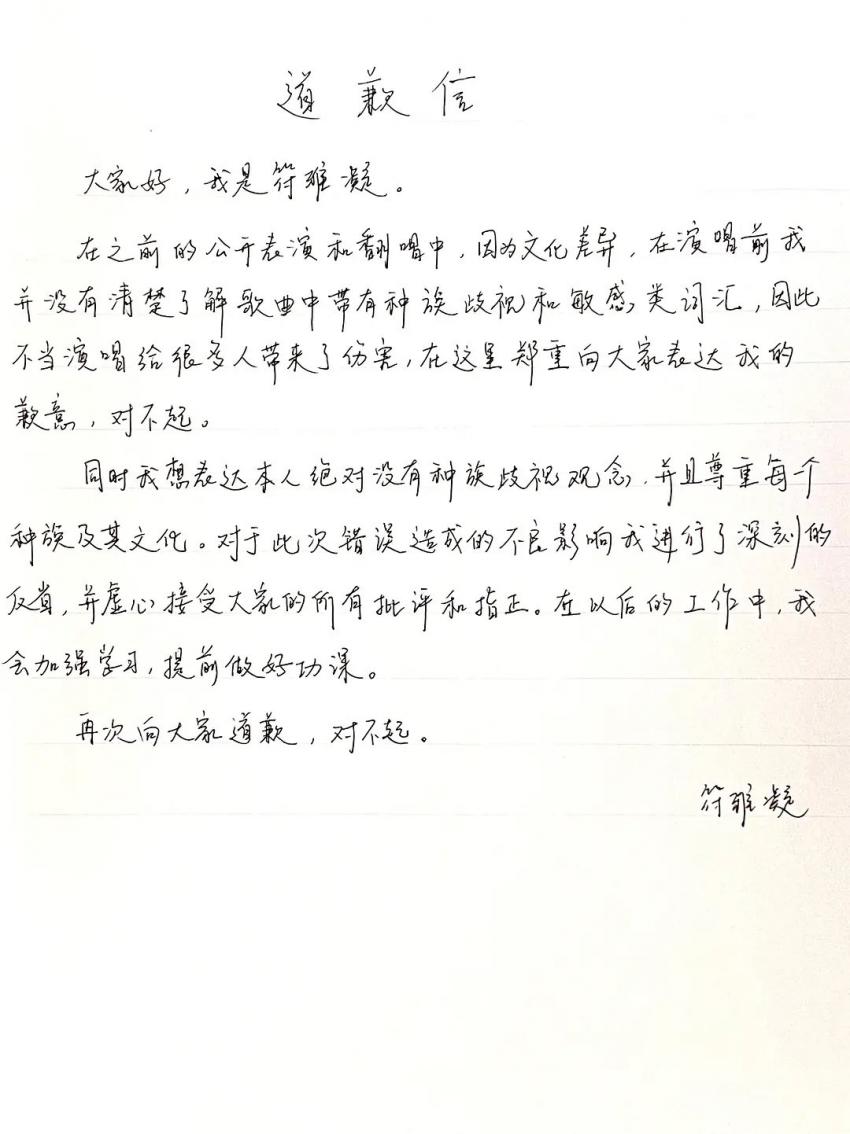 道歉信
大家好，我是符雅凝。
在之前的公开表演和翻唱中，因为文化差异，在演唱前我
并没有清楚了解歌曲中带有种族歧视和敏感类词汇，因此
不当演唱给很多人带来了伤害，在这里郑重向大家表达我的
歉意，对不起。
同时我想表达本人绝对没有种族歧视观念，并且尊重每个
种族及其文化。对于此次错误造成的不良影响我进行了深刻的
反省，并虚心接受大家的所有批评和指正。在以后的工作中，我
会加强学习，提前做好功课。
再次向大家道歉，对不起。
符雅凝